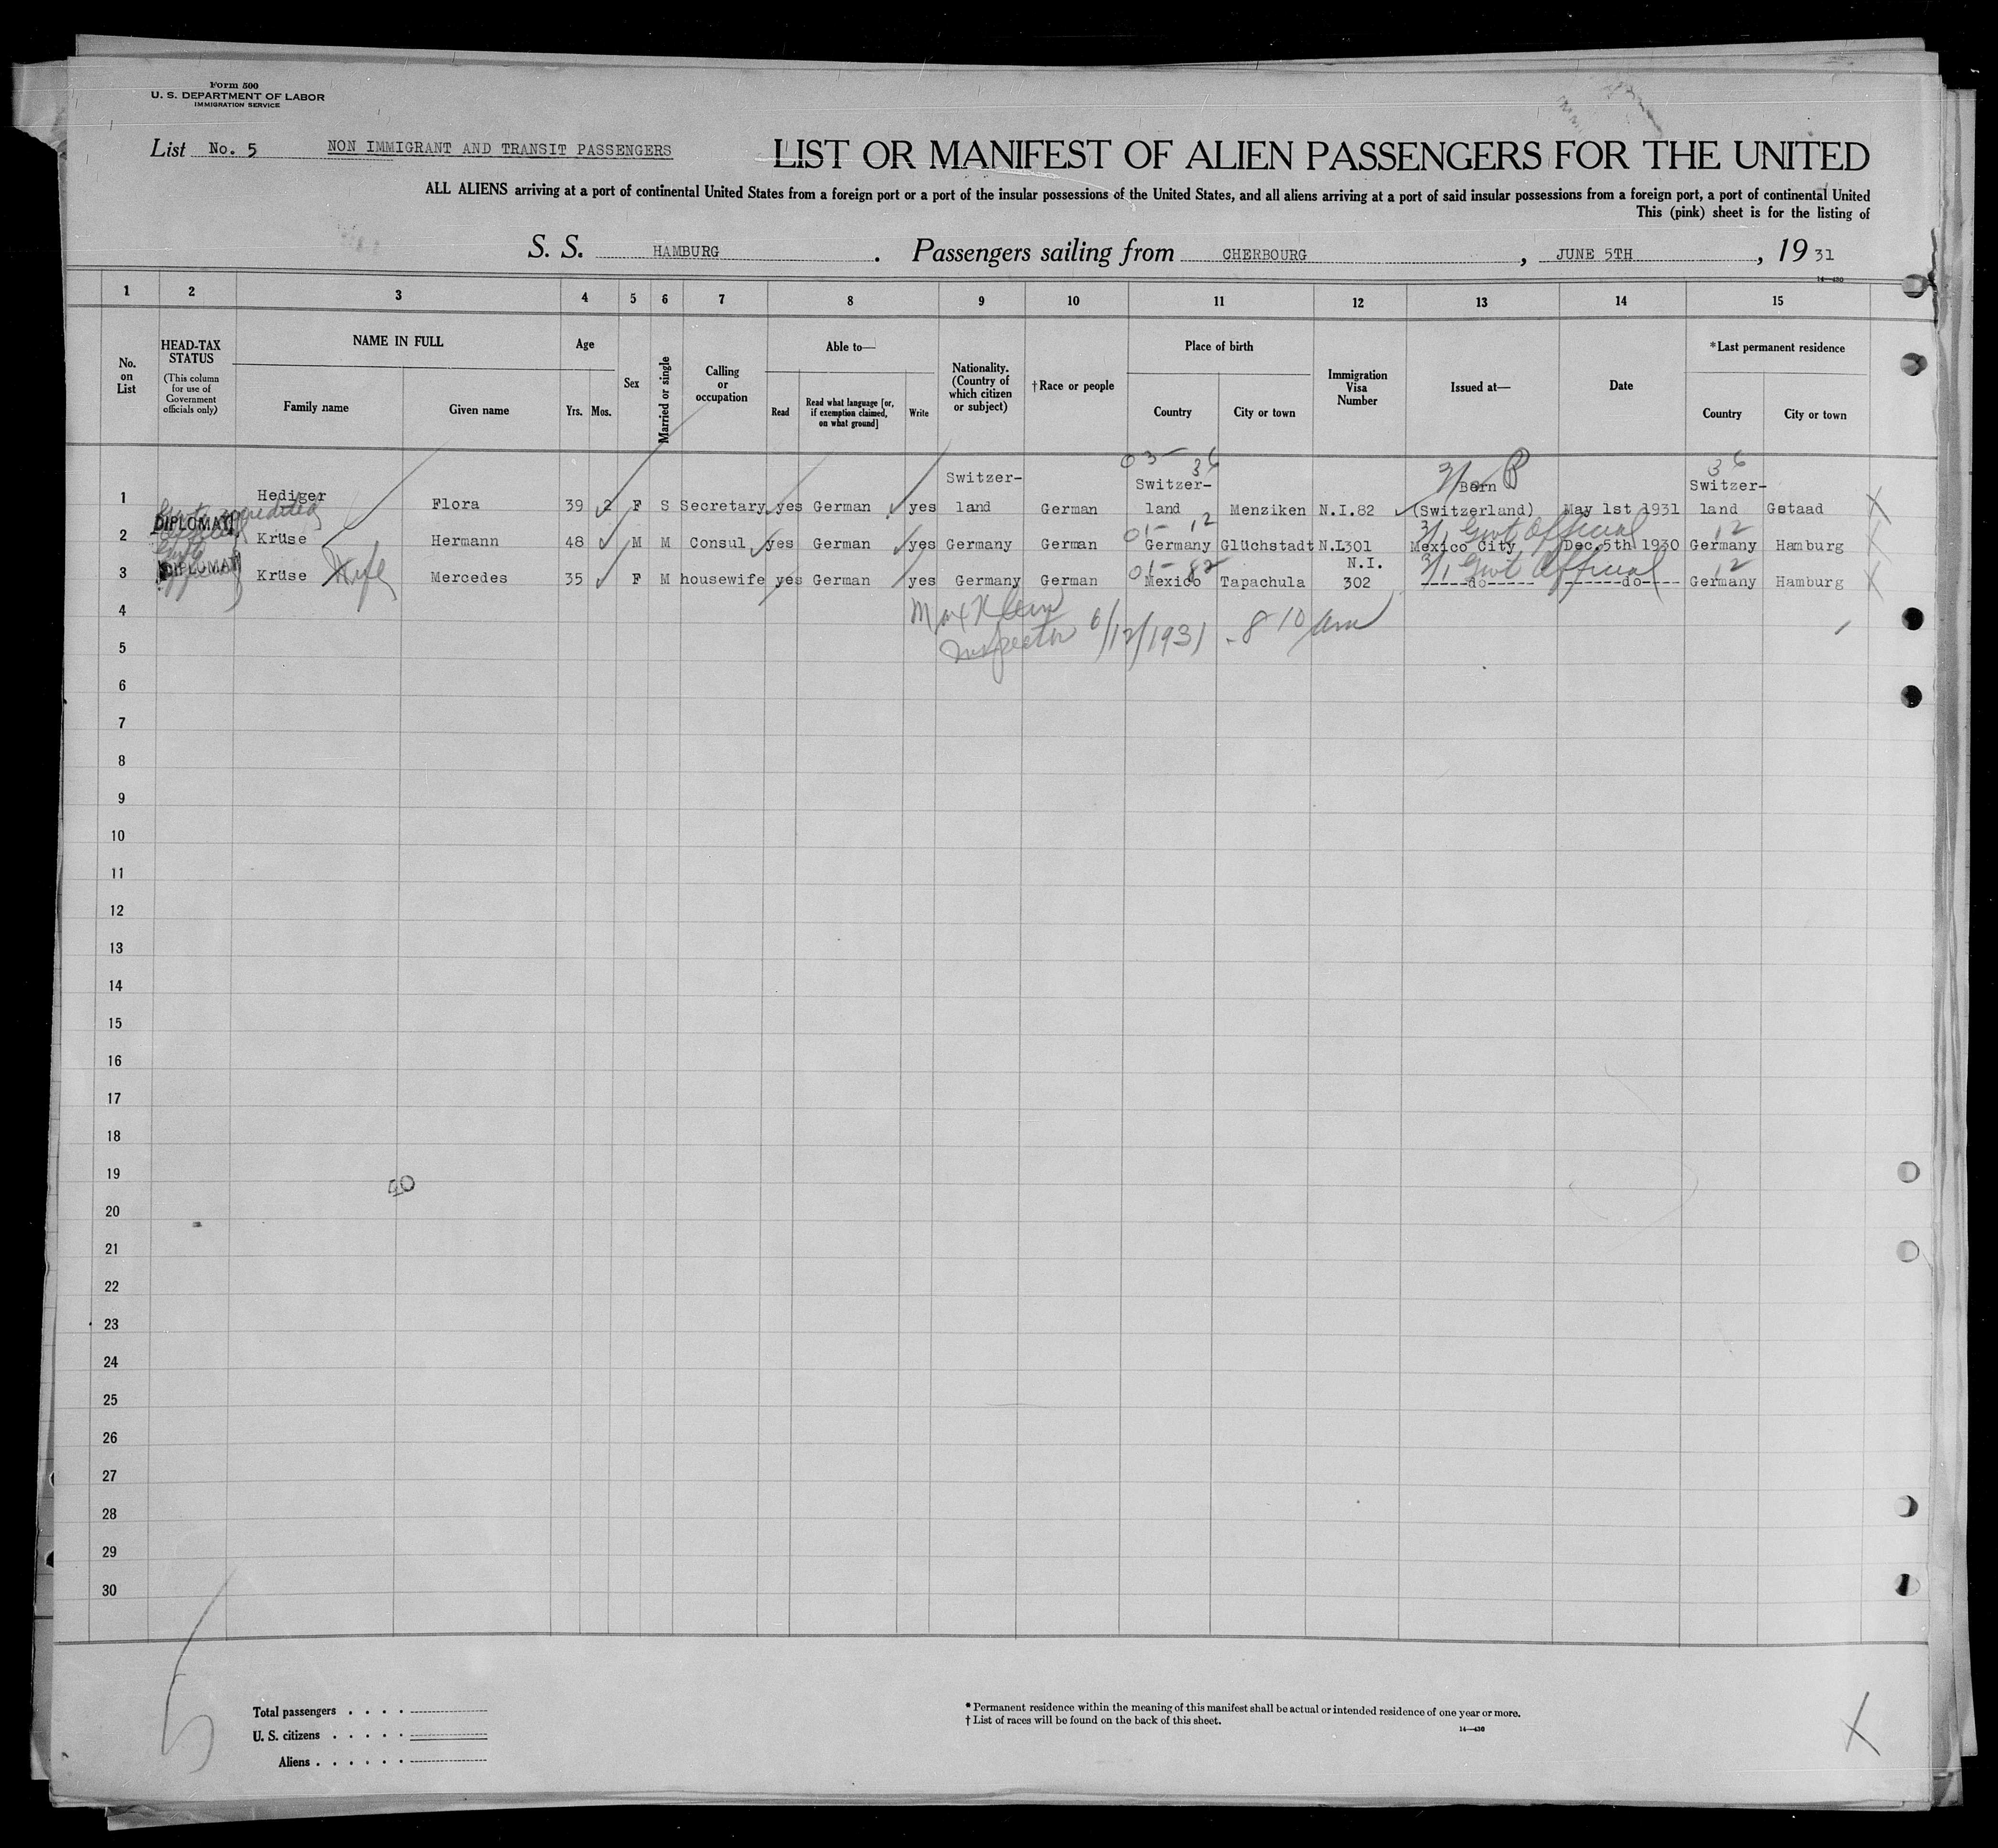 Form 500
U. S. DEPARTMENT OF LABOR
IMMIGRATION SERVICE
List No. 5 NON IMMIGRANT AND TRANSIT PASSENGERS LIST OR MANIFEST OF ALIEN PASSENGERS FOR THE UNITED
ALL ALIENS arriving at a port of continental United States from a foreign port or a port of the insular possessions of the United States, and all aliens arriving at a port of said insular possessions from a foreign port, a port of continental United
This (pink) sheet is for the listing of
S. S. HAMBURG . Passengers sailing from CHERBOURG , JUNE 5TH , 19 31
14—430
1 2 3 4 5 6 7 8 9 10 11 12 13 14 15
No. on List
HEAD-TAX STATUS
(This column for use of Government officials only)
NAME IN FULL
Family name Given name
Age
Yrs. Mos.
Sex
Married or single
Calling or occupation
Able to—
Read
Read what language [or, if exemption claimed, on what ground]
Write
Nationality. (Country of which citizen or subject)
†Race or people
Place of birth
Country City or town
Immigration Visa Number
Issued at—
Date
*Last permanent residence
Country City or town
03- 36 3/ P 36
1 Hediger Flora 39 2 F S Secretary yes German yes Switzer-land German Switzer-land Menziken N.I.82 Bern (Switzerland) May 1st 1931 Switzer-land Gstaad
DIPLOMAT
01- 12 3/1 Govt Official 12
2 Krüse Hermann 48 M M Consul yes German yes Germany German Germany Glüchstadt N.I.301 Mexico City Dec.5th 1930 Germany Hamburg
DIPLOMAT
01- 82 3/1 Govt Official 12
3 Krüse Wife Mercedes 35 F M housewife yes German yes Germany German Mexico Tapachula N.I. 302 -----do----- ------do---- Germany Hamburg
4 Max Klein
5 Inspector 6/12/1931 - 8 10 am
6
7
8
9
10
11
12
13
14
15
16
17
18
19
40
20
21
22
23
24
25
26
27
28
29
30
Total passengers . . . .
U. S. citizens . . . . .
Aliens . . . . . .
* Permanent residence within the meaning of this manifest shall be actual or intended residence of one year or more.
† List of races will be found on the back of this sheet.
14—430